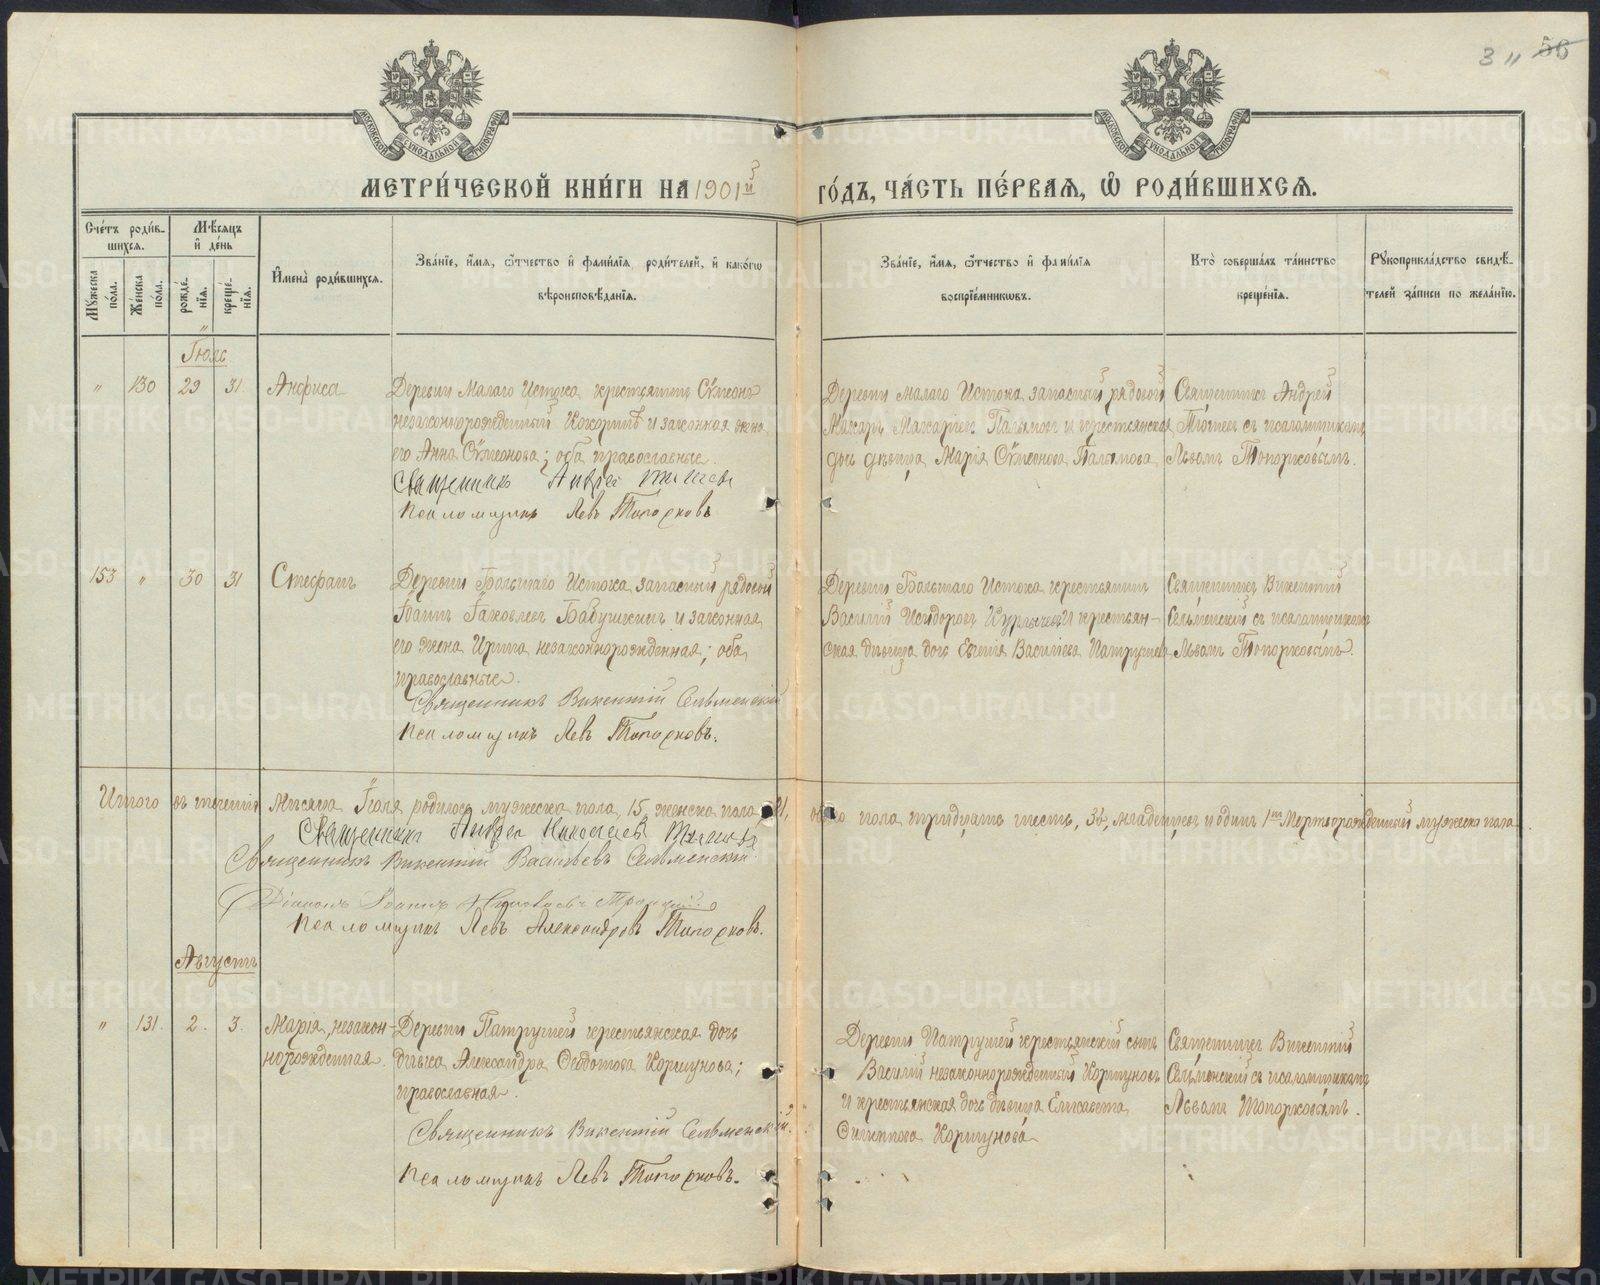 3 " 56
МОСКОВСКОЙ СѴНОДАЛЬНОЙ ТИПОГРАФІИ
МОСКОВСКОЙ СѴНОДАЛЬНОЙ ТИПОГРАФІИ
МЕТРИ́ЧЕСКОЙ КНИ́ГИ НА 1901й ГО́ДЪ, ЧА́СТЬ ПЕ́РВАѦ, Ѡ РОДИ́ВШИХСѦ.
Сче́тъ роди́вшихсѧ.
Мѣ́сѧцъ и де́нь
Мꙋ́жеска по́ла.
Же́нска по́ла.
рожде́нїѧ.
креще́нїѧ.
Имена̀ роди́вшихсѧ.
Зва́нїе, и́мѧ, ѻ́тчество и фами́лїѧ родителей, и како́гѡ вѣроисповѣ́данїѧ.
Зва́нїе, и́мѧ, ѻ́тчество и фами́лїѧ воспрїе́мникѡвъ.
Кто̀ соверша́лъ та́инство креще́нїѧ.
Рꙋкоприкла́дство свидѣ́телей за́писи по жела́нїю.
Іюль
" 130 29 31 Анфиса
Деревни Малаго Истока крестьянинъ Сѵмеонъ
незаконнорожденный Кокоринъ и законная жена
его Анна Сѵмеонова; оба православные.
Священникъ Андрей Тиучевъ
Псаломщикъ Левъ Топорковъ
Деревни Малаго Истока запасный рядовой
Макаръ Макаріевъ Палымовъ и крестьянская
дочь дѣвица Марія Сѵмеонова Палымова
Священникъ Андрей
съ псаломщикомъ
Львомъ Топорковымъ.
153 " 30 31 Стефанъ
Деревни Большаго Истока запасный рядовой
Іоаннъ Іаковлевъ Бабушкинъ и законная
его жена Ирина незаконнорожденная; оба
православные.
Священникъ Викентій Сельменскій
Псаломщикъ Левъ Топорковъ.
Деревни Большаго Истока крестьянинъ
Василій Исидоровъ и крестьян-
ская дѣвица дочь Евгенія Василіева Патрушева
Священникъ Викентій
Сельменскій съ псаломщикомъ
Львомъ Топорковымъ.
Итого въ теченіи Мѣсяца Іюля родилось мужеска пола 15, женска пола 21, обоего пола тридцать шесть, 36, младенцевъ и одинъ 1нъ Мертворожденный мужеска пола
Священникъ Андрей Николаевъ
Священникъ Викентій Васильевъ Сельменскій
Діаконъ Іоаннъ Троицкій
Псаломщикъ Левъ Александровъ Топорковъ.
Августъ
" 131. 2. 3. Марія, незакон-
норожденная
Деревни Патрушей крестьянская дочь
дѣвица Александра Ѳеодотова Коршунова;
православная.
Священникъ Викентій Сельменскій.
Псаломщикъ Левъ Топорковъ.
Деревни Патрушей крестьянскій сынъ
Василій незаконнорожденный Коршуновъ
и крестьянская дочь дѣвица Елисавета
Филиппова Коршунова
Священникъ Викентій
Сельменскій съ псаломщикомъ
Львомъ Топорковымъ.
METRIKI.GASO-URAL.RU